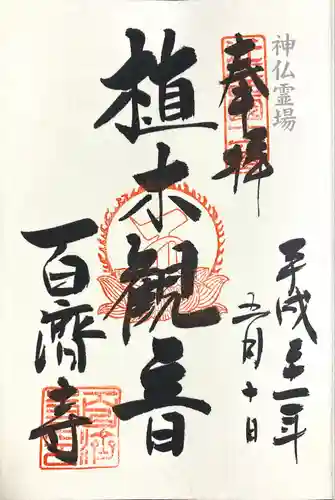 神仏霊場
奉拝
平成三十一年
五月十日
植木観音
百済寺